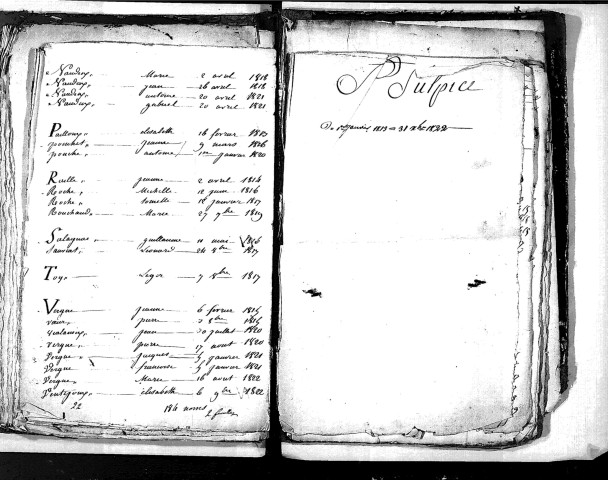 Naudoy. Marie 2 avril 1818
Naudoy. jean 26 avril 1818
Naudoy. antoine 20 avril 1821
Naudoy. gabriel 20 avril 1821
elisabeth 16 fevrier 1813
pouchet jeanne 9 mars 1816
pouche antoine janvier 1820
Ruelle jeanne 2 avril 1814
Roche Michelle 12 juin 1816
Roche 12 janvier 1817
Bouchaud Marie 27 9bre 1819
Salagnac guillaume 11 mai 1816
Leonard 24 8bre 1817
Toy Leger 7 8bre 1817
Vergne jeanne 6 fevrier 1815
pierre 8bre 1815
jean 20 juillet 1820
Vergne pierre 17 aout 1820
Vergne jacques 5 janvier 1821
Vergne francoise 9 janvier 1821
Vergne Marie 16 aout 1822
elisabeth 6 9bre 1822
22
184 noms
St Sulpice
janvier 1813 a 31 xbre 1822